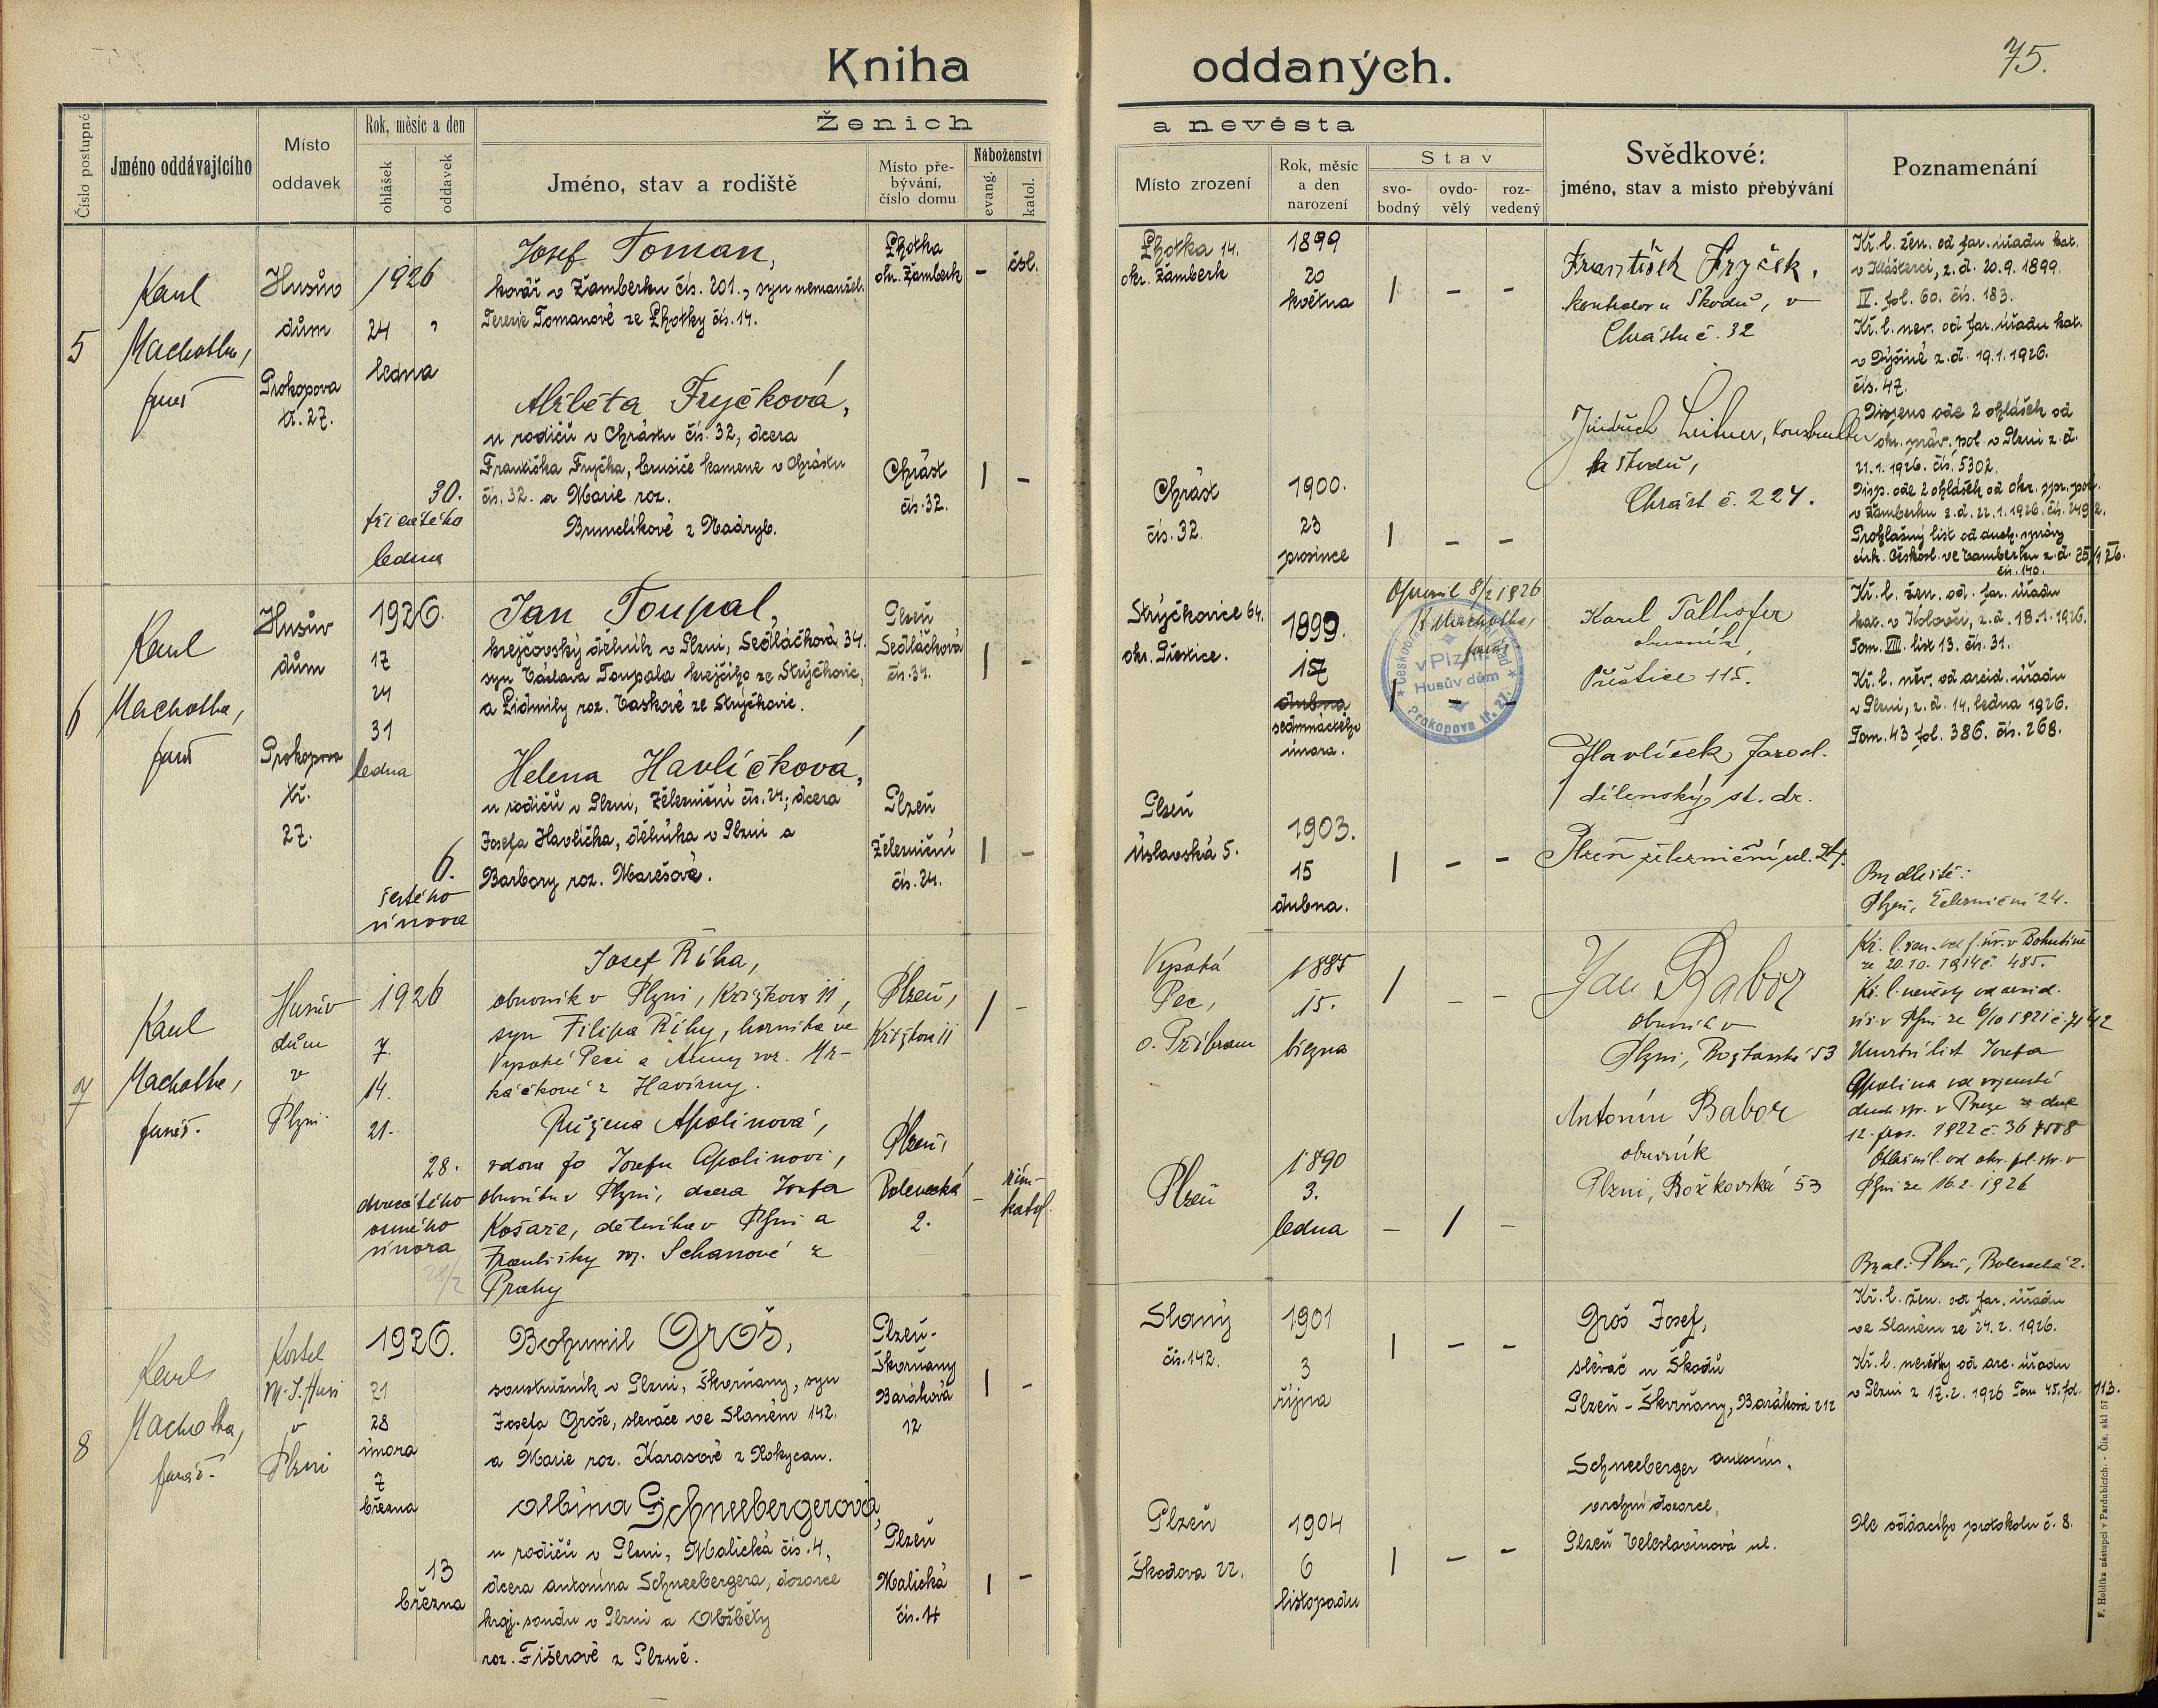 Kniha oddaných.
75.
Číslo postupné
Jméno oddávajícího
Místo oddavek
Rok, měsíc a den
ohlášek
oddavek
Ženich a nevěsta
Jméno, stav a rodiště
Místo pře-
bývání,
číslo domu
Náboženství
evang.
katol.
Místo zrození
Rok, měsíc
a den
narození
Stav
svo-
bodný
ovdo-
vělý
roz-
vedený
Svědkové:
jméno, stav a místo přebývání
Poznamenání
5
Karel
Machotka,
farář
Husův
dům
Prokopova
tř. 27.
1926
24
ledna
30.
třicátého
ledna
Josef Toman,
kovář v Žamberku čís. 201., syn nemanžel.
Terezie Tomanové ze Lhotky čís. 14.
Lhotka
okr. Žamberk
-
čsl.
Lhotka 14.
okr. Žamberk
1899
20
května
/ - -
František Fryček,
kontrolor u Škodů, v
Chrástu č. 32
Kř. l. žen. od far. úřadu kat.
v Klášterci, z. d. 20.9.1899.
IV. fol. 60. čís. 183.
Kř. l. nev. od far. úřadu kat.
v Dýšině z. d. 19.1.1926.
čís. 47.
Alžběta Fryčková,
u rodičů v Chrástu čís. 32, dcera
Františka Fryčka, brusiče kamene v Chrástu
čís. 32. a Marie roz.
Brunclíkové z Nadryb.
Chrást
čís. 32.
/ -
Chrást
čís. 32.
1900.
23
prosince
/ - -
Jindřich Leitner,
Škodů,
Chrást č. 224.
Dispens ode 2 ohlášek od
okr. správ. pol. v Plzni z. d.
21.1.1926. čís. 5302.
Disp. ode 2 ohlášek od okr. spr. pol.
v Žamberku z. d. 22.1.1926. čís.
Prohlašný list od duch. správy
círk. českosl. ve Žamberku z. d.
čís. 140.
6
Karel
Machotka,
farář
Husův
dům
Prokopova
tř.
27.
1926.
17
24
31
ledna
6.
šestého
února
Jan Toupal,
krejčovský dělník v Plzni, Sedláčková 34.
syn Václava Toupala krejčího ze Strýčkovic,
a Lidmily roz. Vaskové ze Strýčkovic.
Plzeň
Sedláčková
čís. 34.
/ -
Strýčkovice 64.
okr. Přeštice.
1899.
17
dubna
sedmnáctého
února.
Opravil 8/2 1926
K. Machotka,
farář
v Plzni
Husův dům
Prokopova tř. 27.
/ - -
Karel Tallhofer
obuvník
Přeštice 115.
Kř. l. žen. od. far. úřadu
kat. v Kolovči, z. d. 18.1.1926.
Tom. VIII. list 13. čís. 31.
Kř. l. něv. od arcid. úřadu
v Plzni, z. d. 14. ledna 1926.
Tom. 43 fol. 386. čís. 268.
Helena Havlíčková,
u rodičů v Plzni, Železniční čís. 24; dcera
Josefa Havlíčka, dělníka v Plzni a
Barbory roz. Marešové.
Plzeň
Železniční
čís. 24.
/ -
Plzeň
Úslavská 5.
1903.
15
dubna.
/ - -
Havlíček Jarosl.
dílenský st. dr.
Plzeň železniční ul. 24.
Bydliště:
Plzeň, Železniční 24.
7
Karel
Machotka,
farář.
Husův
dům
v
Plzni
1926
7.
14.
21.
28.
dvacátého
osmého
února
28/2
Josef Říha,
obuvník v Plzni, Křižíkova 11,
syn Filipa Říhy, horníka ve
Vysoké Peci a Anny roz. Hr-
káčkové z Havírny.
Plzeň,
Křižíkova 11
/ -
Vysoká
Pec,
o. Příbram
1885
15.
března
/ - -
Jan Babor
obuvník v
Plzni, Božkovská 53
Kř. l. žen. od f. úř. v Bohutíně
ze 20.10.1914 č. 485.
Kř. l. nevěsty od arcid.
úř. v Plzni ze 6/10 1921 č. 7142
Úmrtní list Josefa
Apolina od vojenské
duch. spr. v Praze ze dne
12. pros. 1922 č.
Ohláš. od okr. pol. spr. v
Plzni ze 16.2.1926
Růžena Apolinová,
vdova po Josefu Apolinovi,
obuvníku v Plzni, dcera Josefa
Košaře, dělníka v Plzni a
Františky roz. Schanové z
Prahy
Plzeň,
Bolevecká
2.
-
řím-
katol.
Plzeň
1890
3.
ledna
- / -
Antonín Babor
obuvník
Plzni, Božkovská 53
Bydl.: Plzeň, Bolevecká 2.
8
Karel
Machotka,
farář.
Kostel
M. J. Husi
v
Plzni
1926.
21
28
února
7
března
13
března
Bohumil Groš,
soustružník v Plzni, Škvrňany, syn
Josefa Groše, slevače ve Slaném 142.
a Marie roz. Karasové z Rokycan.
Plzeň-
Škvrňany
Baráková
12
/ -
Slaný
čís. 142.
1901
3
října
/ - -
Groš Josef,
slévač u Škodů
Plzeň - Škvrňany, Baráková 212
Kř. l. žen. od far. úřadu
ve Slaném ze 24.2.1926.
Kř. l. nevěsty od arc. úřadu
v Plzni z 17.2.1926 Tom 45. fol. 113.
Albína Schneebergerová,
u rodičů v Plzni, Malická čís. 4,
dcera Antonína Schneebergera, dozorce
kraj. soudu v Plzni a Alžběty
roz. Fišerové z Plzně.
Plzeň
Malická
čís. 14
/ -
Plzeň
Škodova 22.
1904
6
listopadu
/ - -
Schneeberger Antonín,
vrchní dozorce,
Plzeň Veleslavínová ul.
Dle oddacího protokolu č. 8.
F. Hoblíka nástupci v Pardubicích. - Čís. skl 57